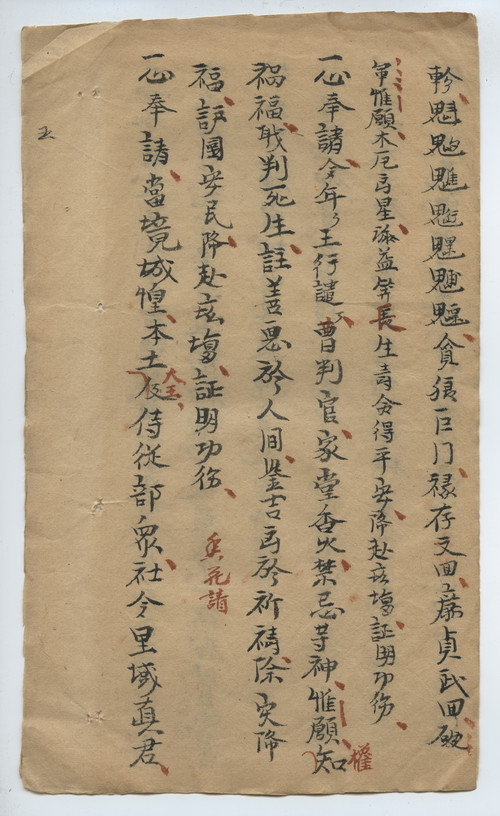 軫魁貪狼巨门禄存文曲廉貞武曲破
軍惟願木厄為星添益筭長生壽命得平安降赴玆壇証明功德
一心奉請今年々王行譴々曹判官家堂香火禁忌等神惟願知權
禍福职判死生註善惡於人间鉴吉為於祈禱除灾降
福护國安民降赴玆壇証明功德 香花請
一心奉請當境城惶本土大王及侍從部衆社令里域真君
五